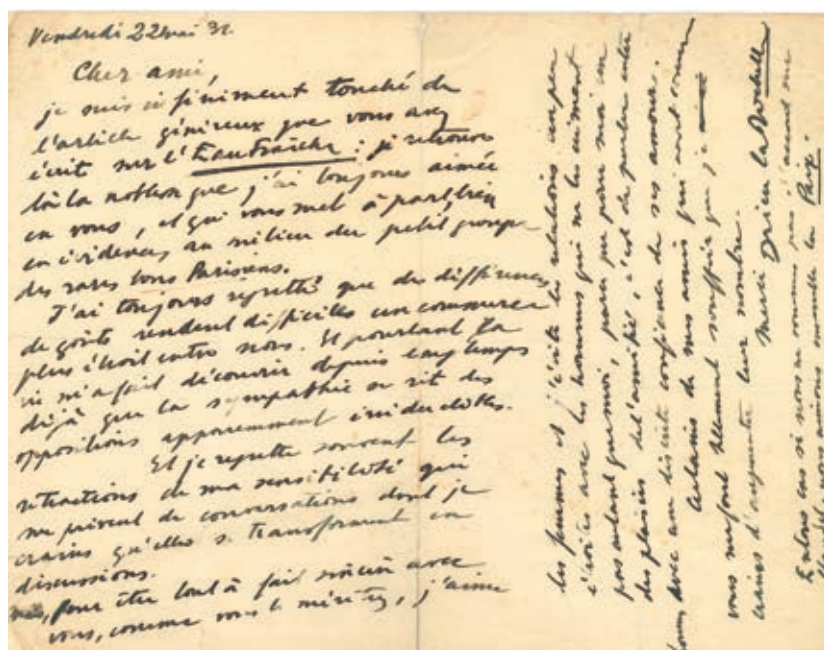 Vendredi 22 mai 31.
Cher ami,
je suis infiniment touché de
l'article généreux que vous avez
écrit sur l'Eau Fraîche : je retrouve
là la noblesse que j'ai toujours aimée
en vous, et qui vous met à part, bien
en évidence, au milieu du petit groupe
des rares bons Parisiens.
J'ai toujours regretté que des différences
de goûts rendent difficiles un commerce
plus étroit entre nous. Et pourtant la
vie m'a fait découvrir depuis longtemps
déjà que la sympathie se rit des
oppositions apparemment irréductibles.
Et je regrette souvent les
rétractions de ma sensibilité qui
me privent de conversations dont je
crains qu'elles se transforment en
discussions.
Mais, pour être tout à fait sincère avec
vous, comme vous le méritez, j'aime
les femmes et j'évite les relations un peu
étroites avec les hommes qui ne les aiment
pas autant que moi, parce que pour moi un
des plaisirs de l'amitié, c'est de parler entre
hommes avec une discrète confiance de ses amours.
Certains de mes amis qui sont comme
vous me font tellement souffrir que je
crains d'augmenter leur nombre.
Merci Drieu la Rochelle
En tous cas si nous ne sommes pas d'accord sur
nous aimons ensemble la Paix.